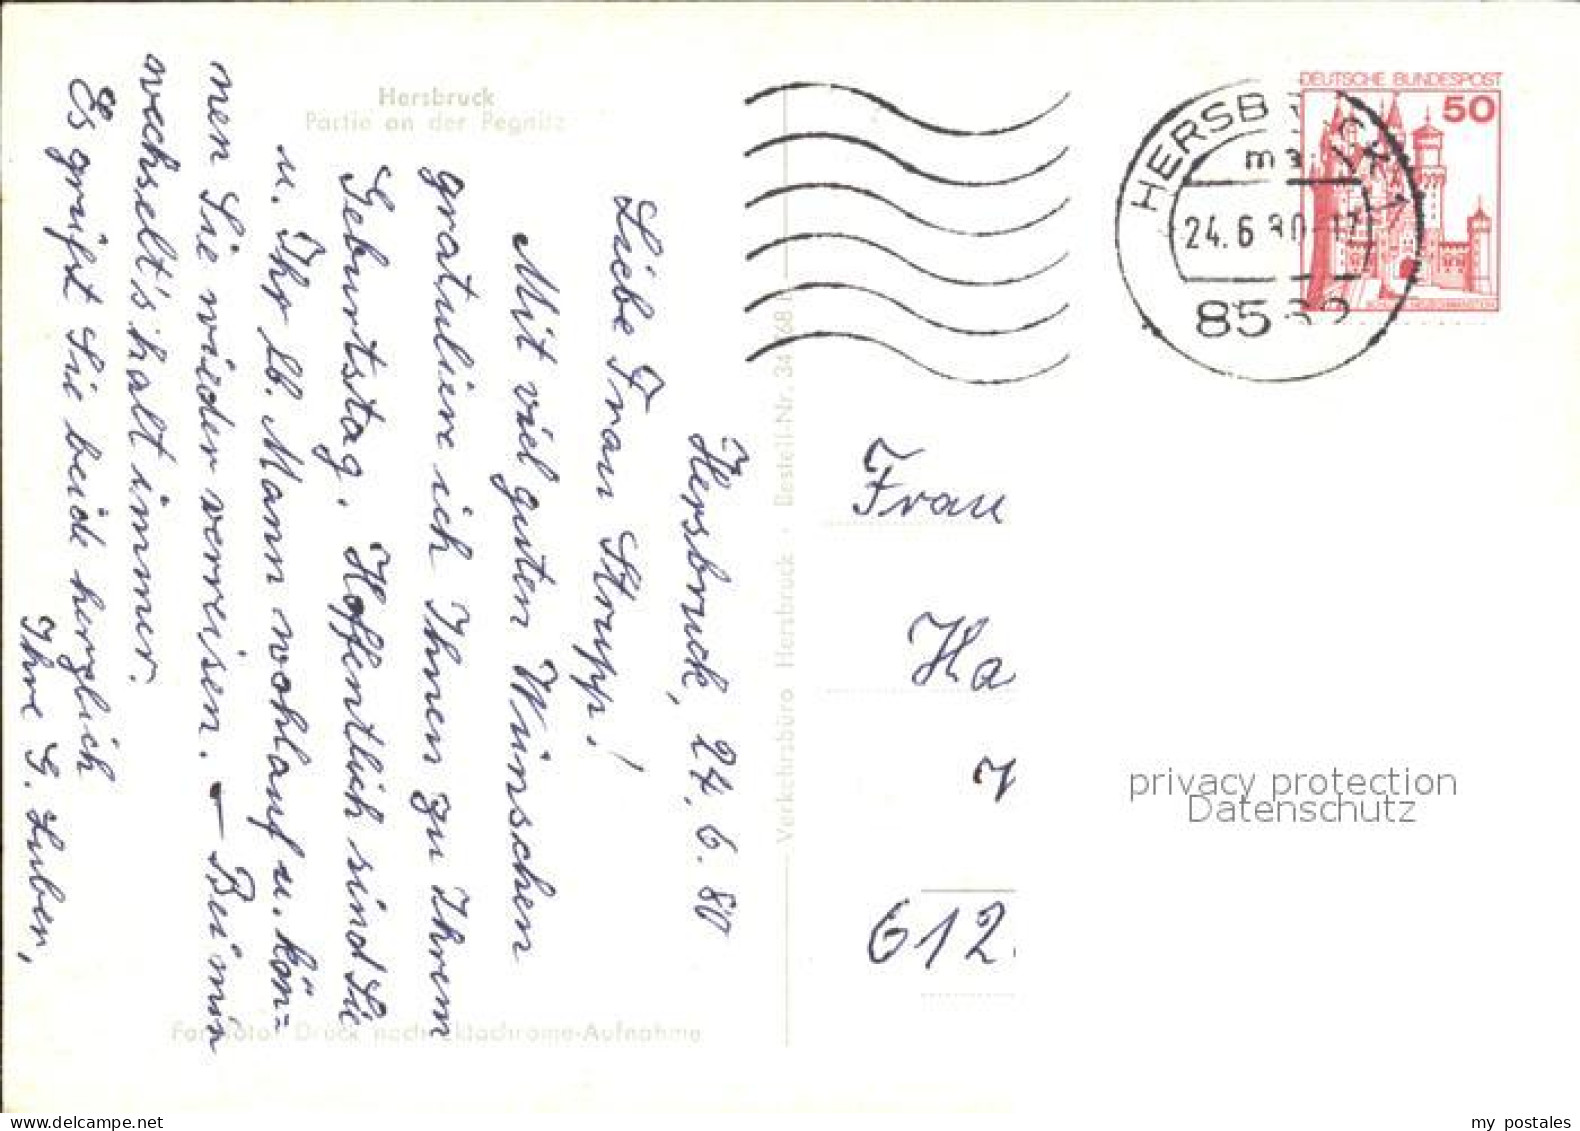 Hersbruck
Partie an der Pegnitz
Hersbruck, 24. 6. 80
Liebe Frau Strupp!
Mit viel guten Wünschen
gratuliere ich Ihnen zu Ihrem
Geburtstag. Hoffentlich sind Sie
u. Ihr lb. Mann wohlauf u. kön=
nen Sie wieder verreisen. – Bei mir
wechselt's halt immer.
Es grüßt Sie beide herzlich
Ihre G. Luber,
Farbfoto Druck nach Ektachrome-Aufnahme
Verkehrsbüro Hersbruck · Bestell-Nr. 34
DEUTSCHE BUNDESPOST
50
HERSBRUCK 1
24.6.80-17
8562
Frau
Ha
612
privacy protection
Datenschutz
my postales